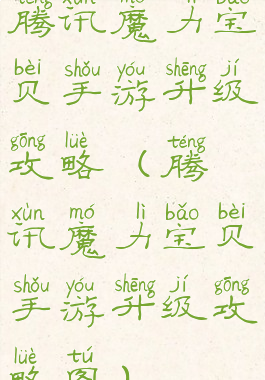 téng xùn mó lì bǎo
腾讯魔力宝
bèi shǒu yóu shēng jí
贝手游升级
gōng lüè téng
攻略(腾
xùn mó lì bǎo bèi
讯魔力宝贝
shǒu yóu shēng jí gōng
手游升级攻
lüè tú
略图)